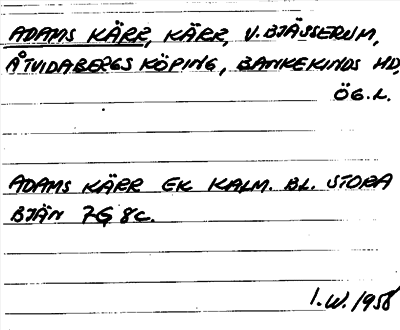 ADAMS KÄRR, KÄRR, V. BJÄSSERUM,
ÅTVIDABERGS KÖPING, BANKEKINDS HD,
ÖG.L.
ADAMS KÄRR EK KALM. BL. STORA
BJÄN 7G 8c.
I.W. 1958